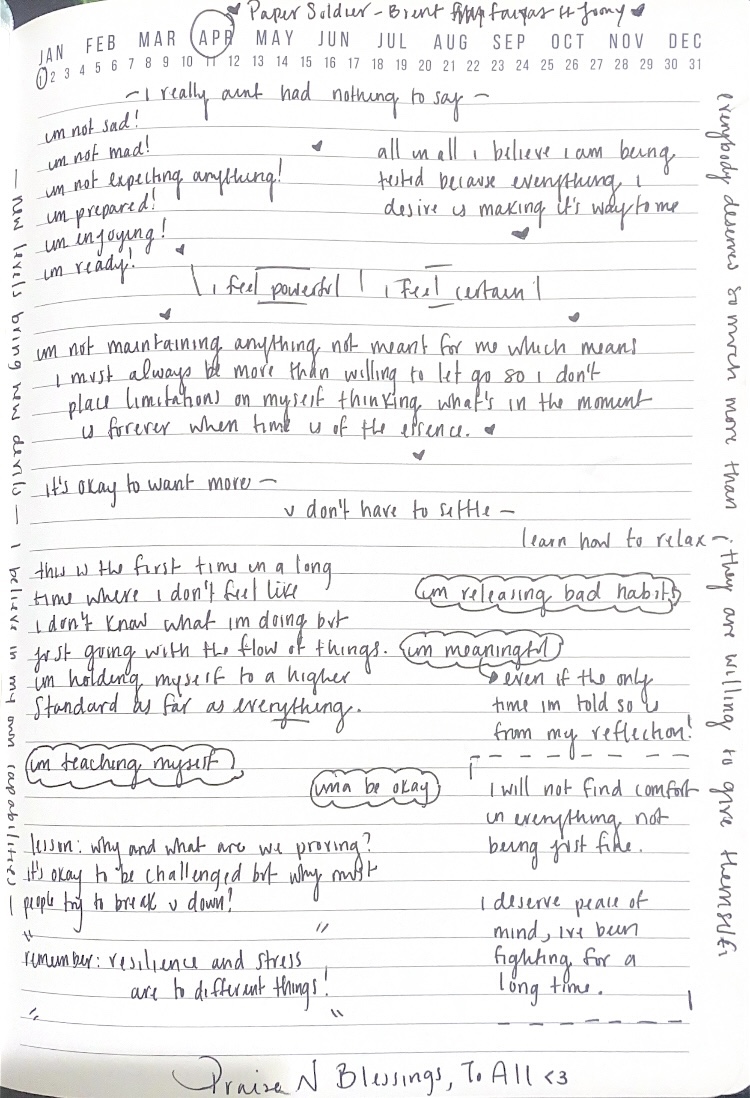 Paper Soldier - Brent Faiyaz ft Joony
JAN FEB MAR APR MAY JUN JUL AUG SEP OCT NOV DEC
1 2 3 4 5 6 7 8 9 10 11 12 13 14 15 16 17 18 19 20 21 22 23 24 25 26 27 28 29 30 31
~ I really aint had nothing to say ~
im not sad!
im not mad!
im not expecting anything!
im prepared!
im enjoying!
im ready!
all in all i believe i am being
tested because everything i
desire is making it's way to me
i feel powerful! i feel certain!
im not maintaining anything not meant for me which means
i must always be more than willing to let go so i don't
place limitations on myself thinking what's in the moment
is forever when time is of the essence.
it's okay to want more —
u don't have to settle —
learn how to relax ~
this is the first time in a long
time where i don't feel like
i don't know what im doing but
just going with the flow of things.
im holding myself to a higher
standard as far as everything.
im releasing bad habits
im meaningful
even if the only
time im told so is
from my reflection!
im teaching myself
imma be okay
I will not find comfort
in everything not
being just fine.
i deserve peace of
mind, ive been
fighting for a
long time.
lesson: why and what are we proving?
it's okay to be challenged but why must
people try to break u down?
" "
remember: resilience and stress
are to different things!
" "
— New levels bring new devils — I believe in my own capabilities —
everybody deserves so much more than they are willing to give themself
Praise N Blessings, To All <3